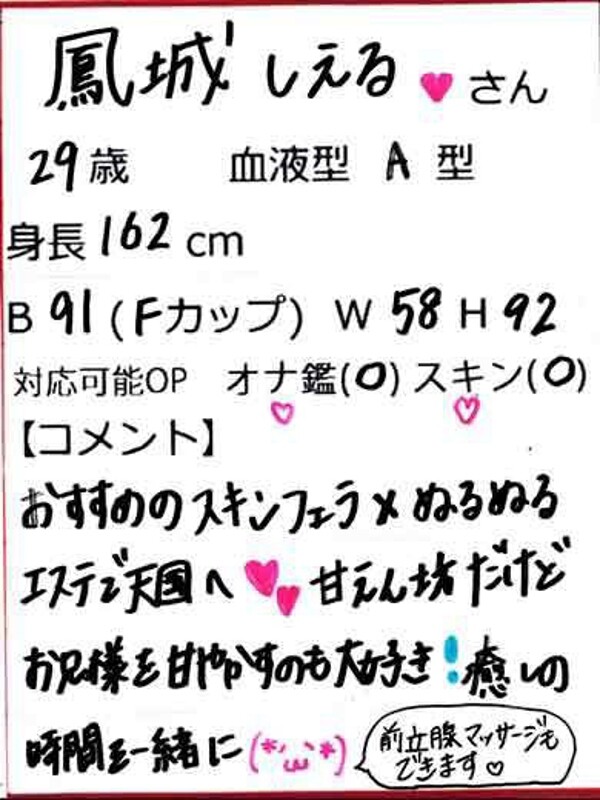 鳳城しえる♥さん
29歳 血液型 A 型
身長 162 cm
B 91 (Fカップ) W 58 H 92
対応可能OP オナ鑑(O) スキン(O)
【コメント】
おすすめのスキンフェラ×ぬるぬる
エステで天国へ♥♥甘えん坊だけど
お兄様を甘やかすのも大好き!癒しの
時間を一緒に(*'ω'*)
前立腺マッサージも
できます♡